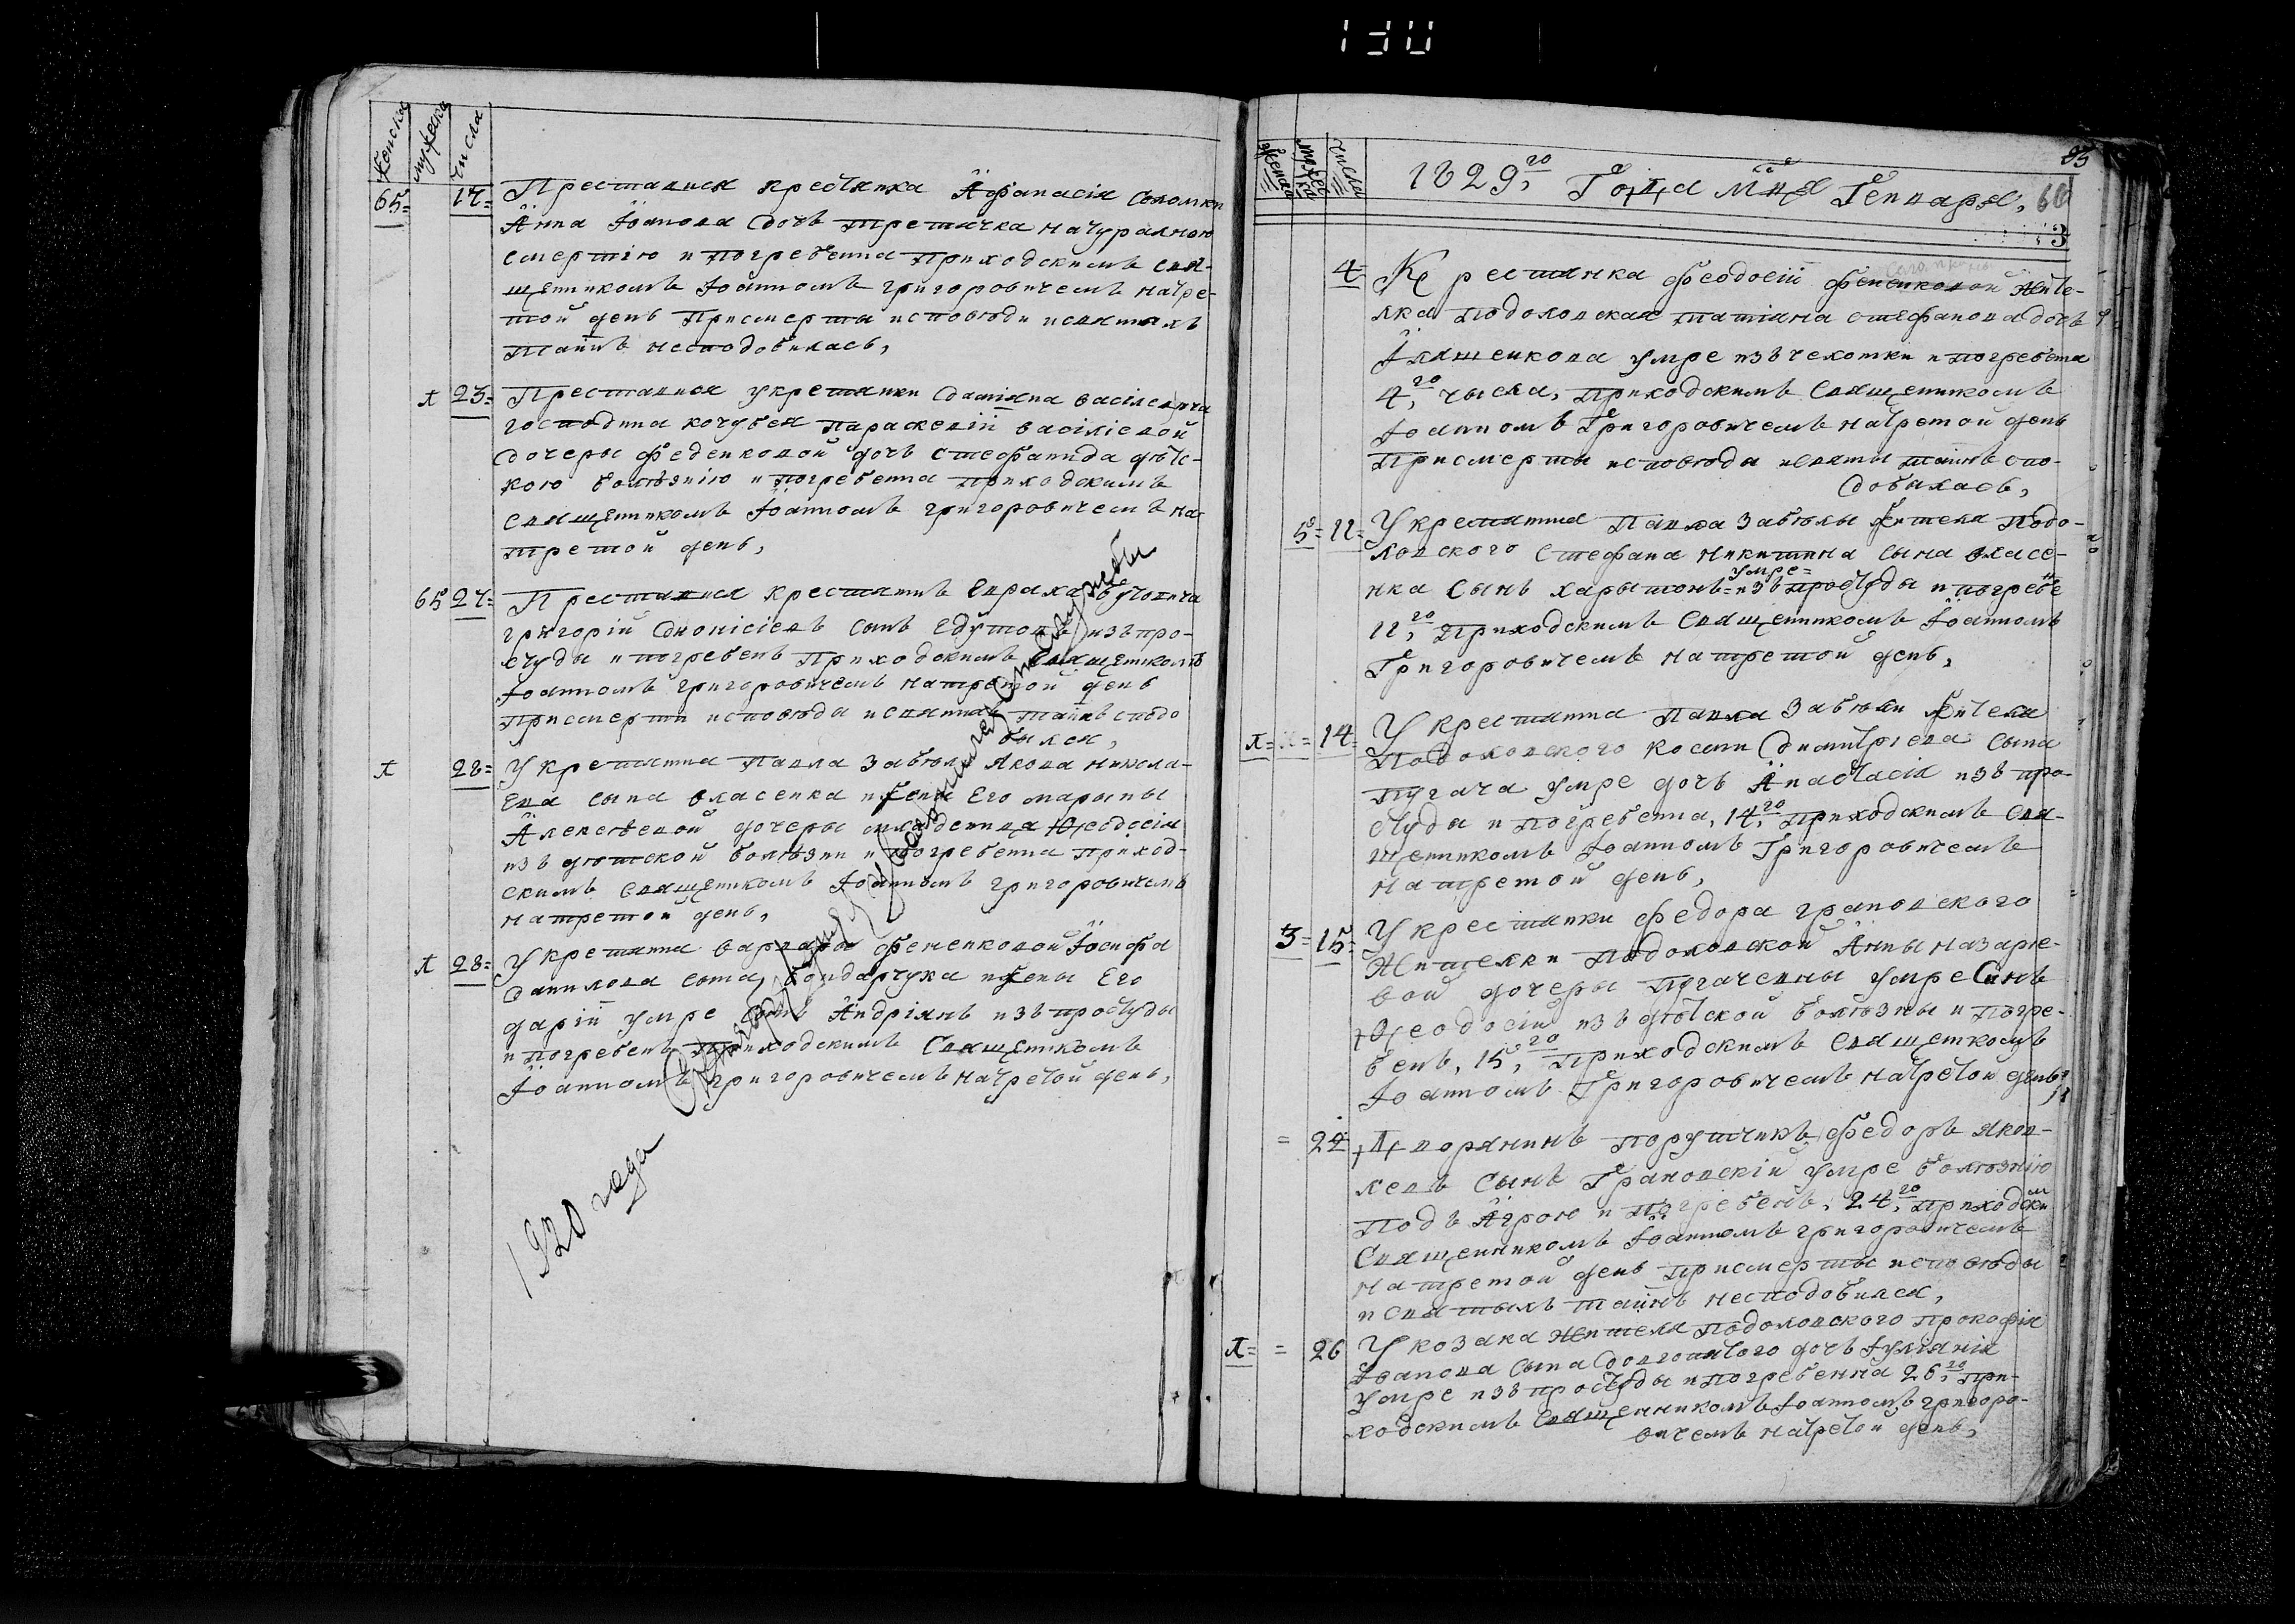 130
женска
мужеска
числа
65=
17=
Преставися крестянка Афанасія Соломки
Анна Іванова дочъ Третячка натуралною
смертію и погребенна приходскимъ свя-
щенникомъ Іоанномъ Григоровичемъ натре-
той день присмерты исповѣди исвятыхъ
таинъ несподобилась,
23=
Преставися укрестянки Даміяна василевича
господина кочубея параскевіи васіліевой
дочеры феденковой дочъ стефанида дѣтс-
кою болѣзнію и погребенна приходскимъ
священникомъ Іоанномъ григоровичемъ на
третой день,
65
27=
Преставися крестянинъ
григорій Діонісіевъ сынъ изъ про-
студы и погребенъ приходскимъ священникомъ
Іоанномъ григоровичемъ натретой день
присмерти исповѣды исвятихъ таинъ сподо
бился,
28=
У крестянина Павла забѣлы Якова никола-
ева сына власенка ижены Его марыны
Алексѣевой дочеры младеница Ѳеодосія
изъ дѣтской болѣзни и погребенна приход-
скимъ священникомъ Іоанномъ григоровичемъ
натретой день,
28=
У крестянина варвары фененковой Іосифа
данилова сына бондарчука ижены Его
дарій умре сынъ Андріянъ изъ простуды
и погребенъ приходскимъ Священникомъ
Іоанномъ григоровичемъ натретой день,
1820 года
83
1829,го Года Мца Генваря,
66
3
женска
мужеска
числа
4=
Крестянка Феодосіи Фененковой жите-
лка подоловская татіана стефанова дочъ
Іляшенкова умре изъ чехотки и погребена
4,го числа, приходскимъ Священникомъ
Іоанномъ Григоровичемъ натретой день
присмерты исповѣды исвяты таинъ спо-
добилась,
5=
11=
У крестянина Павла Забѣлы жителя Подо-
ловского Стефана Никитина сына власе-
нка сынъ харытонъ=умре=изъ простуды и погребе
11,го Приходскимъ Священникомъ Іоанномъ
Григоровичемъ на третой день,
14=
У крестянина Павла Забѣли жителя
Подоловского косми Димитріева сына
пугача умре дочъ Анастасія изъ про-
студы и погребенна, 14,го приходскимъ Свя-
щенникомъ Іоанномъ Григоровичемъ
на третой день,
3=
15=
У крестянки федора грановского
Жителки Подоловской Анны назаре-
вой дочеры пугачевны умре Синъ
Ѳеодосій изъ дѣтской болѣзны и погре-
бенъ, 15,го Приходскимъ Священикомъ
Іоанномъ Григоровичемъ натретой день
=
24
Дворянинъ порутчикъ Федоръ яков-
левъ Сынъ Грановскій умре болѣзнію
подъ Агрою и погребенъ, 24,го приходским
Священникомъ Іоанномъ григоровичемъ
на третой день присмерты исповѣды
и святыхъ таинъ несподобился,
=
26
У козака жителя подоловского прокофія
Іванова сына Долгопятого дочъ Іуліянія
умре изъ простуды и погребенна 26,го при-
ходскимъ священникомъ Іоанномъ григоро-
вичемъ натретой день,